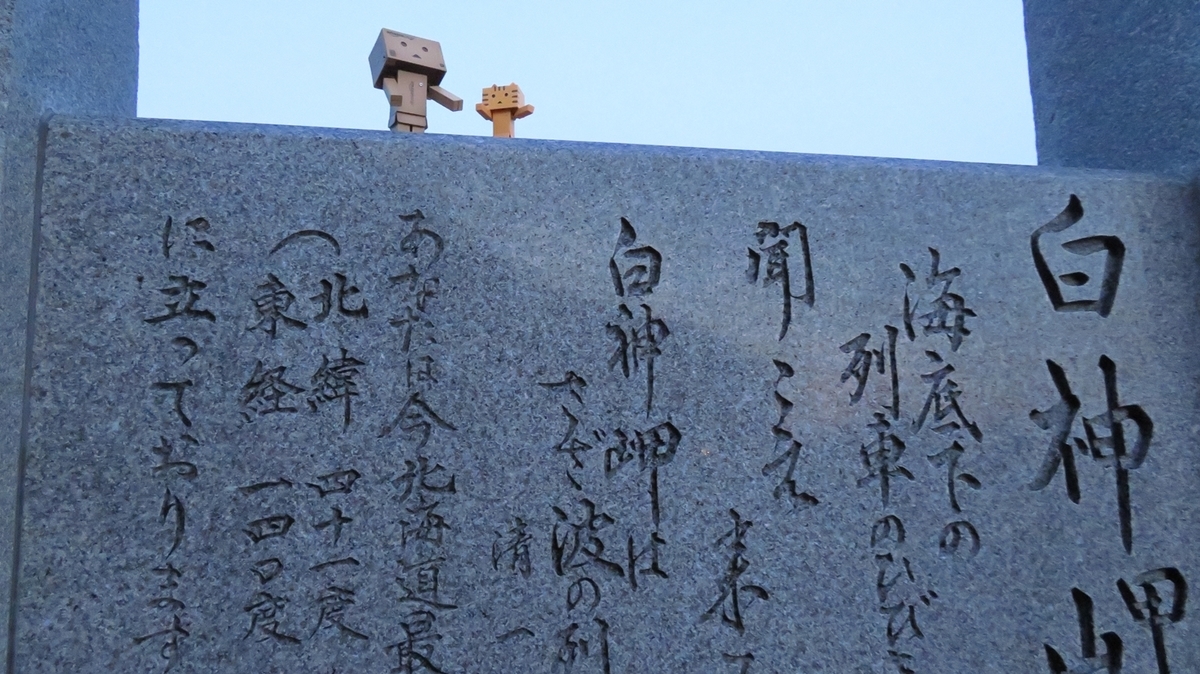 白神岬
海底下の
列車のひび
聞こえ
来て
白神岬は
さざ波の列
清一
あなたは今北海道最
（北緯四十一度
東経一四〇度
に立っております